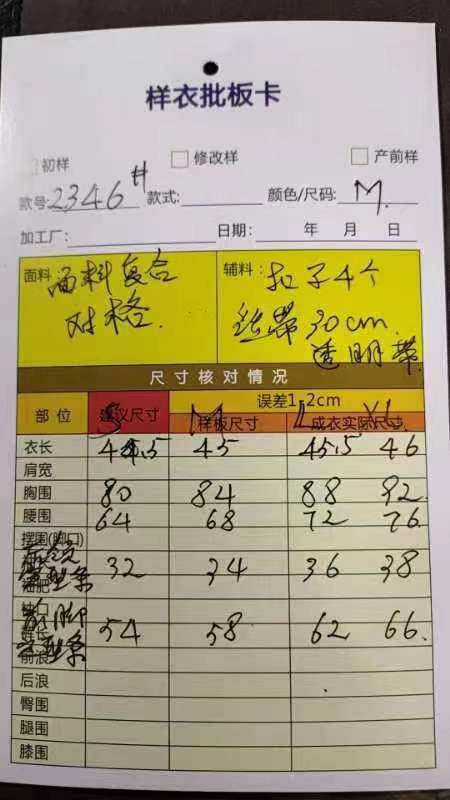 样衣批板卡
初样 修改样 产前样
款号: 2346# 款式: 颜色/尺码: M.
加工厂: 日期: 年 月 日
面料: 面料复合
对格.
辅料: 扣子4个
丝带30cm.
透明带.
尺寸核对情况
部位 建议尺寸 样板尺寸 误差1-2cm
成衣实际尺寸
S M L XL
衣长 44.5 45 45.5 46
肩宽
胸围 80 84 88 92.
腰围 64 68 72 76.
摆围(脚口)
32 34 36 38
袖口
前脚 54 58 62 66.
前浪
后浪
臀围
腿围
膝围